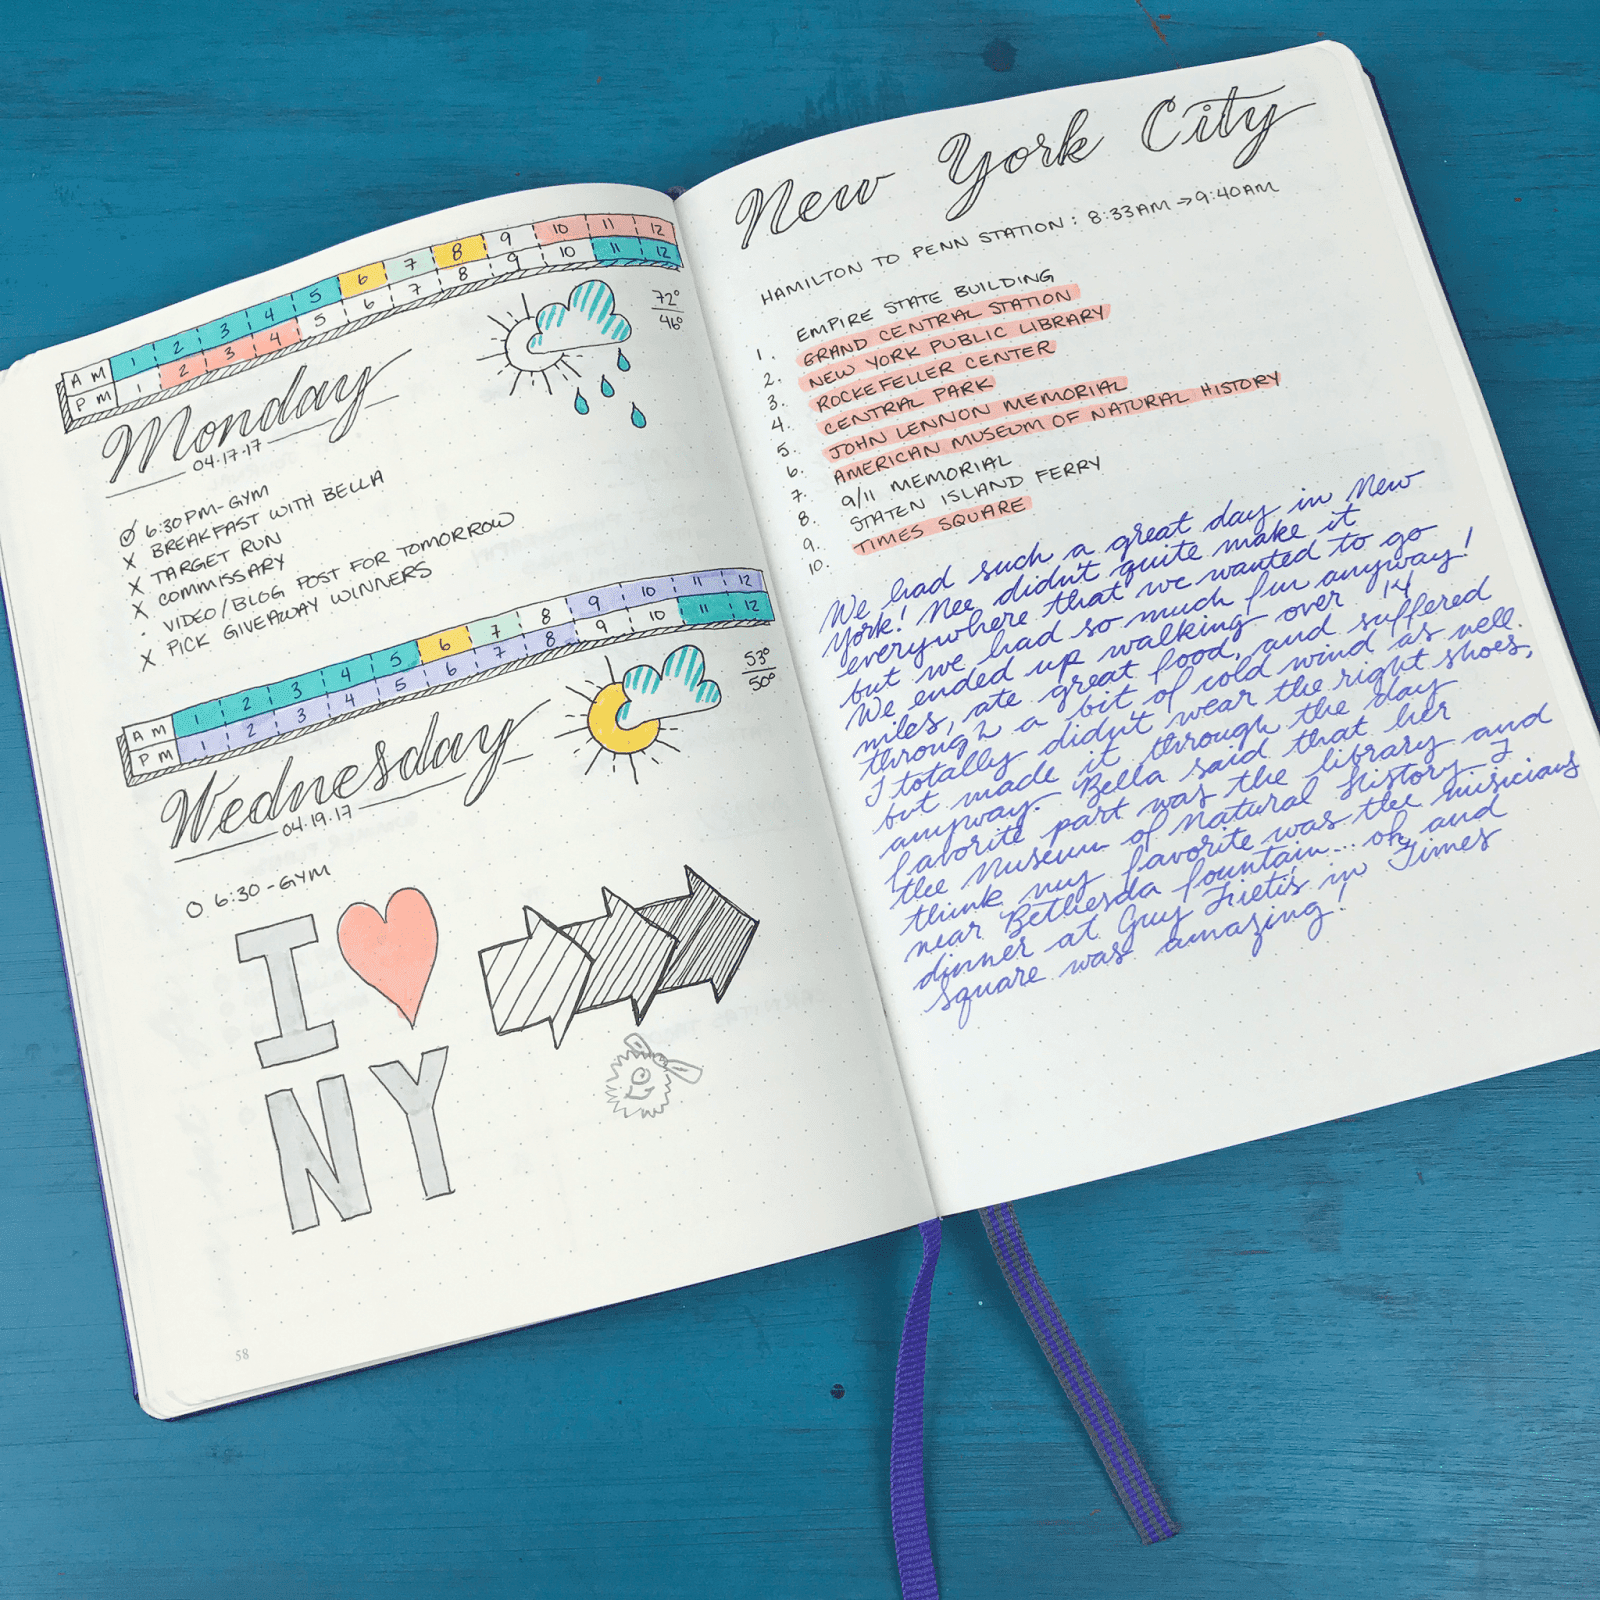 AM 1 2 3 4 5 6 7 8 9 10 11 12
PM 1 2 3 4 5 6 7 8 9 10 11 12
72°
46°
Monday
04.17.17
6:30PM-GYM
X BREAKFAST WITH BELLA
X TARGET RUN
X COMMISSARY
· VIDEO/BLOG POST FOR TOMORROW
X PICK GIVEAWAY WINNERS
AM 1 2 3 4 5 6 7 8 9 10 11 12
PM 1 2 3 4 5 6 7 8 9 10 11 12
53°
50°
Wednesday
04.19.17
O 6:30-GYM
I
NY
58
New York City
HAMILTON TO PENN STATION: 8:33AM→9:40AM
1. EMPIRE STATE BUILDING
2. GRAND CENTRAL STATION
3. NEW YORK PUBLIC LIBRARY
4. ROCKEFELLER CENTER
5. CENTRAL PARK
6. JOHN LENNON MEMORIAL
7. AMERICAN MUSEUM OF NATURAL HISTORY
8. 9/11 MEMORIAL
9. STATEN ISLAND FERRY
10. TIMES SQUARE
We had such a great day in New
York! Nee didn't quite make it
everywhere that we wanted to go
but we had so much fun anyway!
We ended up walking over 14
miles, ate great food, and suffered
through a bit of cold wind as well.
I totally didn't wear the right shoes,
but made it through the day
anyway. Bella said that her
favorite part was the library and
the Museum of Natural History. I
think my favorite was the musicians
near Bethesda fountain... oh, and
dinner at Guy Fietis in Times
Square was amazing!